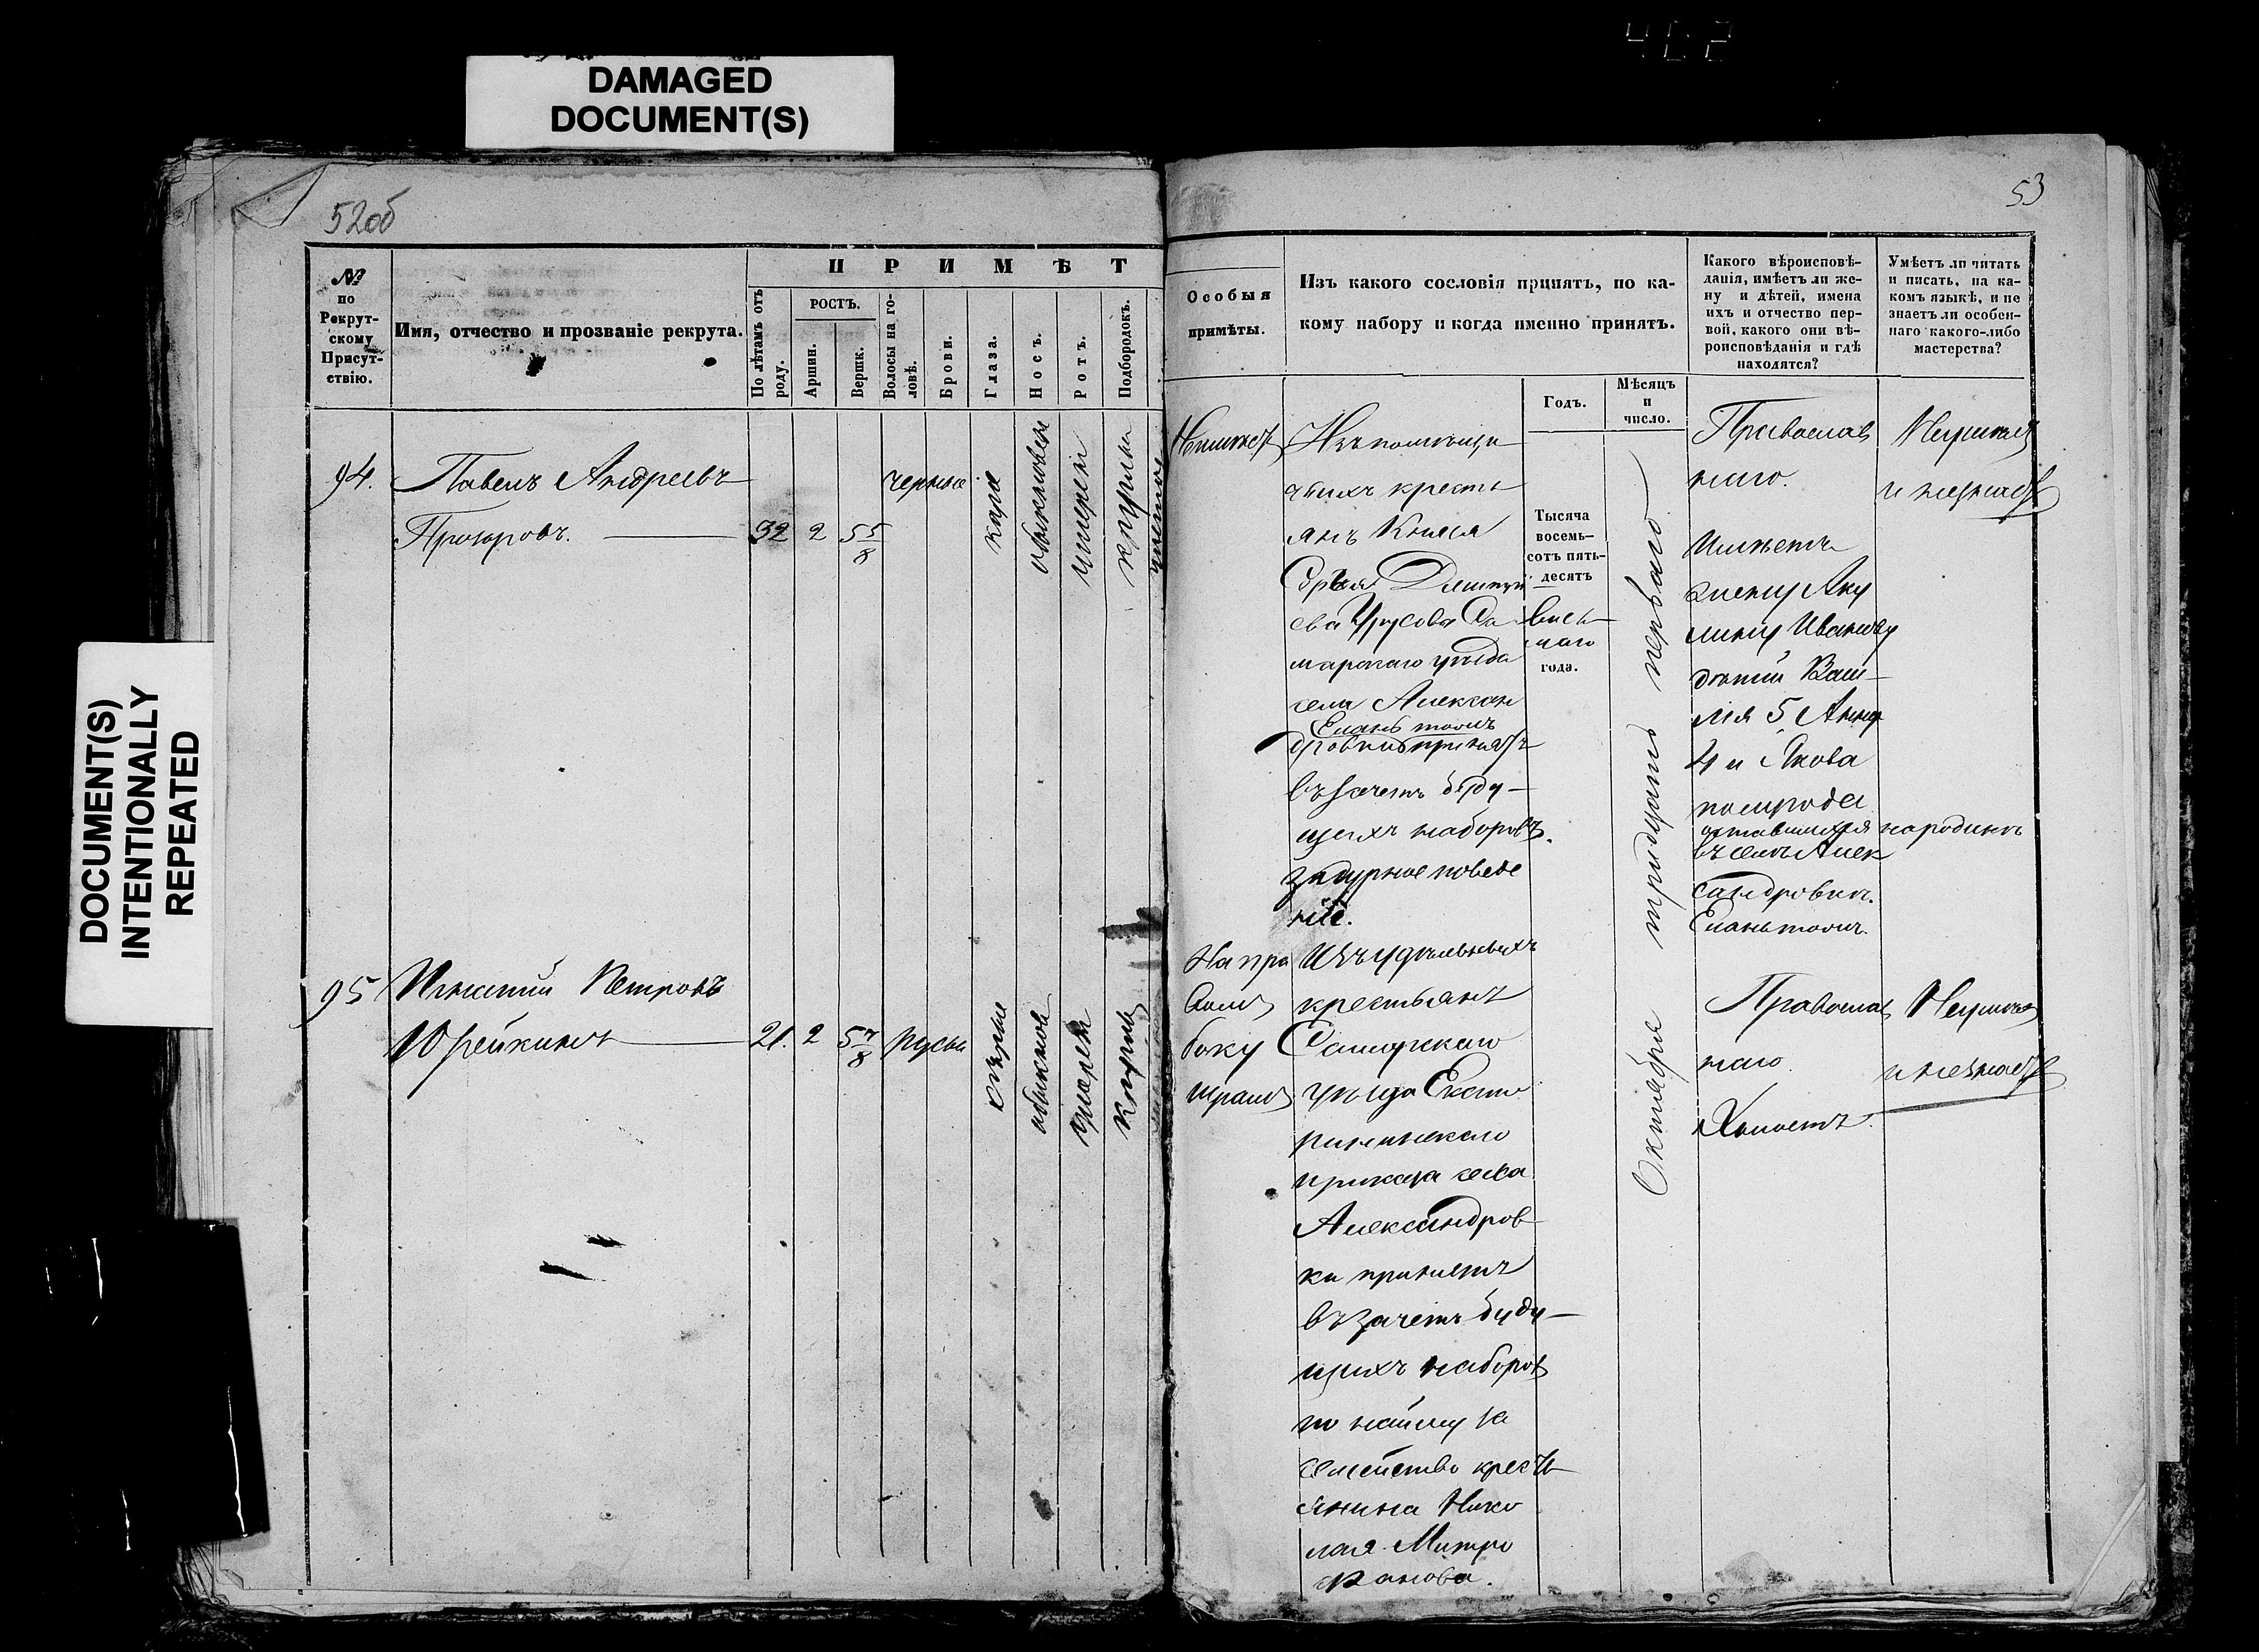 DAMAGED
DOCUMENT(S)
DOCUMENT(S)
INTENTIONALLY
REPEATED
52об
№
по
Рекрут-
скому
Присут-
ствію.
Имя, отчество и прозваніе рекрута.
ПРИМѢТ
По лѣтамъ отъ
роду.
РОСТЪ.
Аршин.
Вершк.
Волосы на го-
ловѣ.
Брови.
Глаза.
Носъ.
Ротъ.
Подбородокъ.
94.
Павелъ Андреевъ
Прохоровъ.
32
2
5 5/8
черные
каріе
обыкновен
умерен
круглый
95
Игнатій Петровъ
21.
2
5 7/8
русы
сѣрые
обыкнов
умерен
кругл
53
Особыя
примѣты.
Изъ какого сословія принятъ, по ка-
кому набору и когда именно принятъ.
Годъ.
Мѣсяцъ
и
число.
Какого вѣроисповѣ-
данія, имѣетъ ли же-
ну и дѣтей, имена
ихъ и отчество пер-
вой, какого они вѣ-
роисповѣданія и гдѣ
находятся?
Умѣетъ ли читать
и писать, на ка-
комъ языкѣ, и не
знаетъ ли особен-
наго какого-либо
мастерства?
Изъ помѣщи
чьихъ кресть
янъ Князя
ева Урусова Са
марскаго уѣзда
села Алексан
Елань тожъ
дровки принятъ
въ зачетъ буду-
щихъ наборовъ
за дурное поведе
ніе.
Тысяча
восемь-
сотъ пять-
десятъ
вось-
маго
года.
Октября тридцать перваго
Православ
наго.
Имѣетъ
жену Аку
лину Иванову
дѣтей Васи-
лія 5 Анну
4 и Якова
полугода
оставшихся на родинѣ
въ селѣ Алек
сандровкѣ
Елань тожъ.
Неумѣетъ
и незнаетъ
На пра
вомъ
боку
шрамъ
Изъ удѣльныхъ
крестьянъ
Самарскаго
уѣзда Екате
рининскаго
приказа села
Александров-
ки принятъ
въ зачетъ буду-
щихъ наборовъ
по найму за
семейство кресть-
янина Нико
лая Митро
фанова.
Православ
наго.
Холостъ.
Неумѣетъ
и незнаетъ